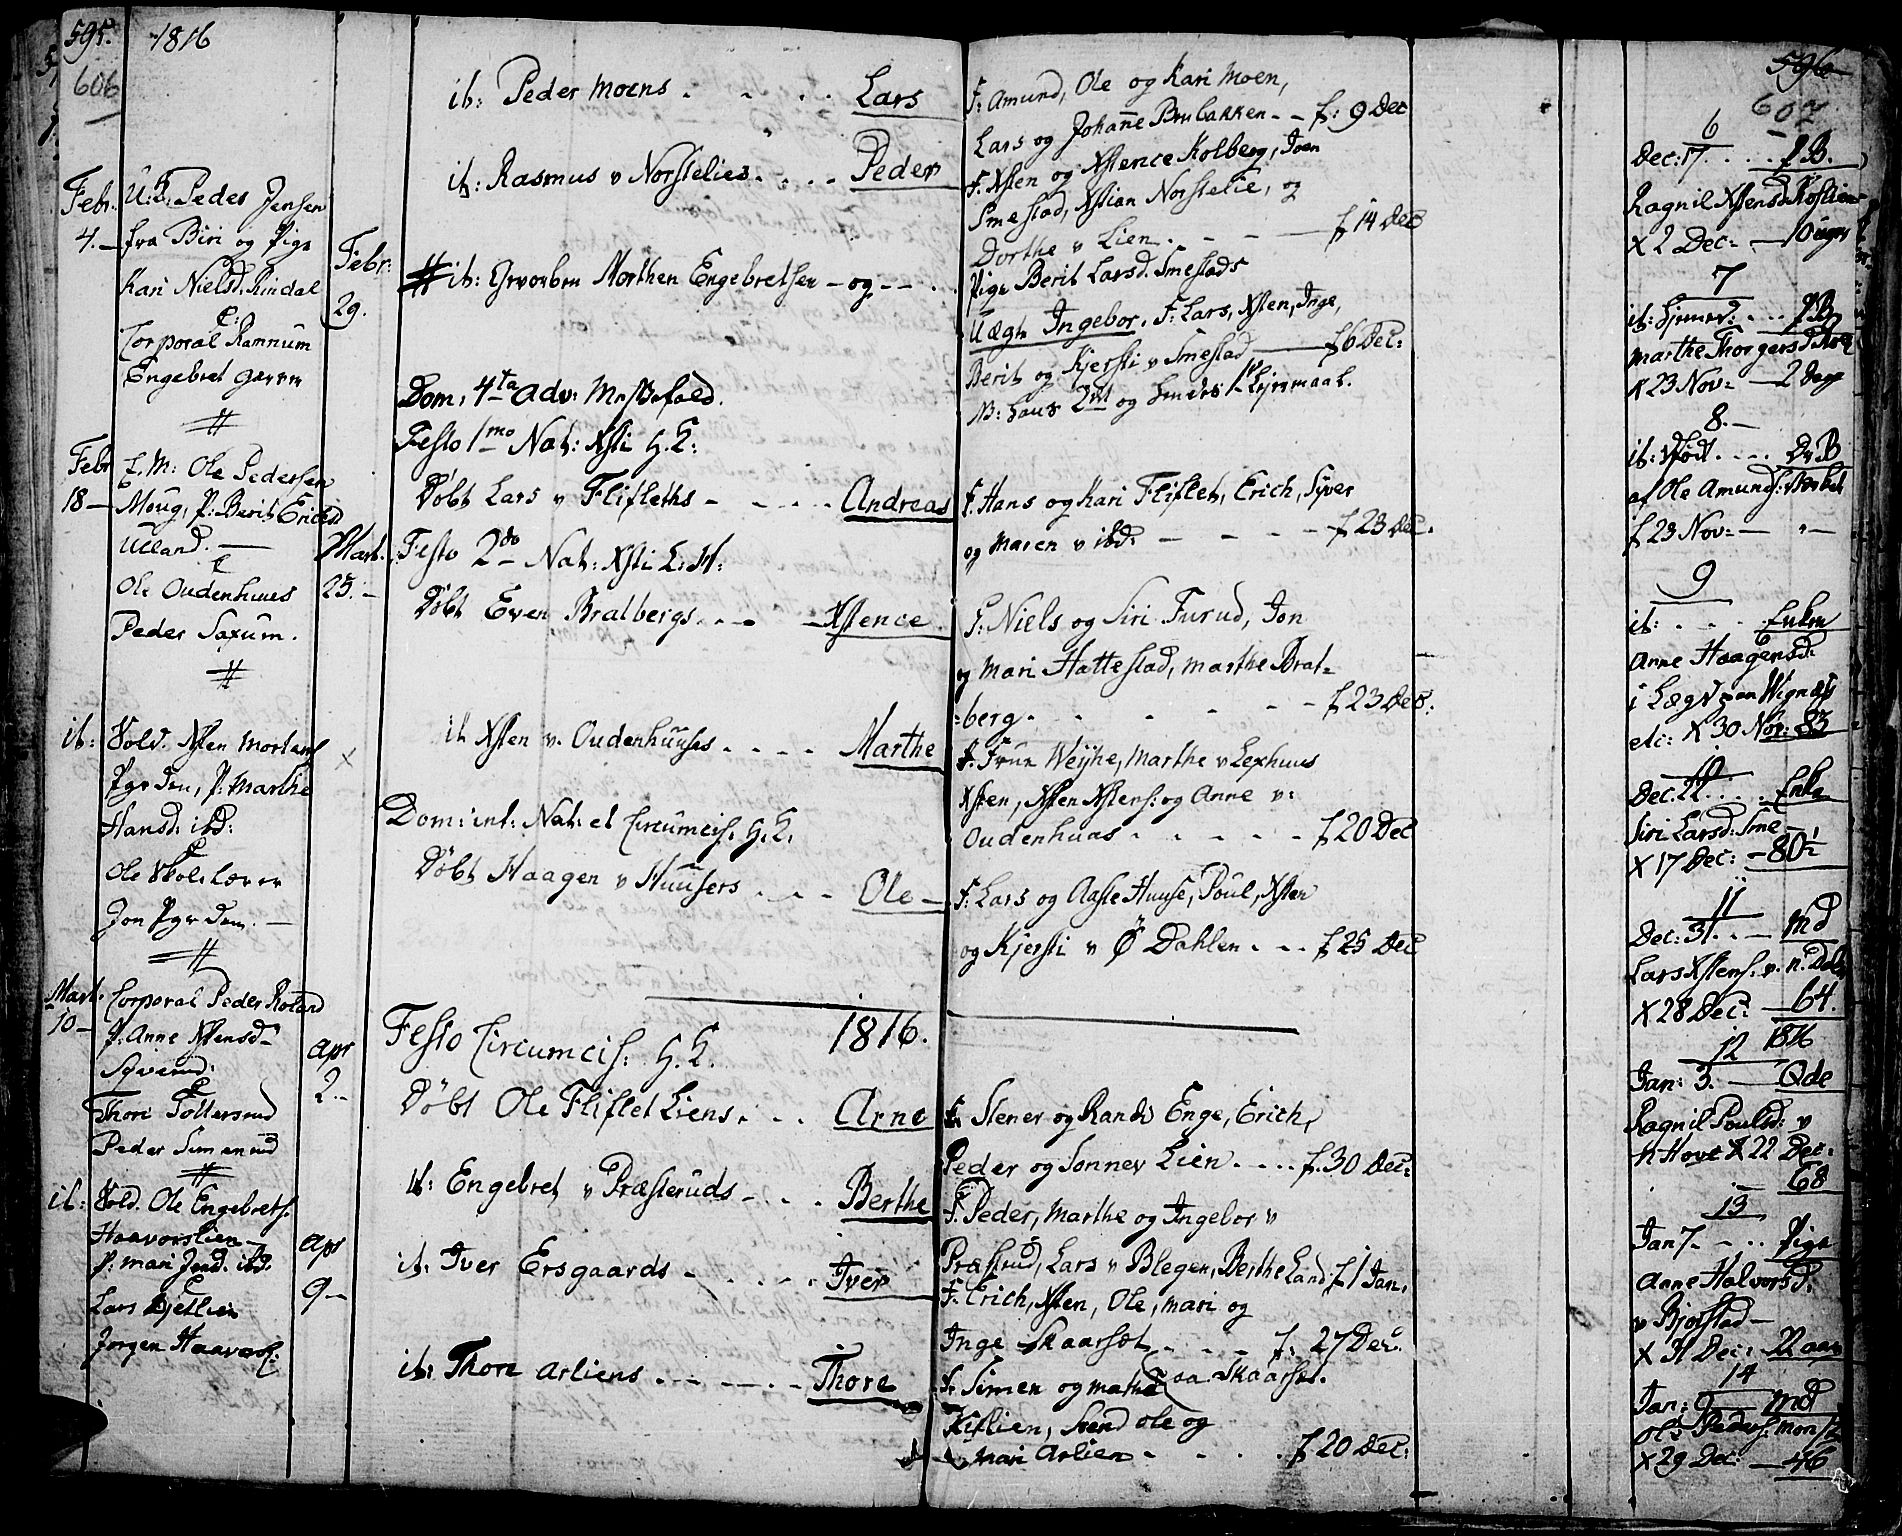 595.
1816
606
Febr.
4.
U: B: Peder Jensen
fra Biri og Pige
Kari Nielsd. Rindal
C:
Corporal Ramnum
Engebret
Febr:
29.
Febr
18 –
E. M: Ole Pedersen
Moug, P: Berit Ericsd
Ueland. —
C
Ole Oudenhuus
Peder Saxum.
Mart.
25. –
it: Sold. Xsten Mortens
P: Marthe
Hansd: ibd:
C
Ole
Jon
Mart.
10 –
Corporal Peder Roland
P: Anne Xstensd –
C
Thori
Peder Simenrud
Apr
2 –
it: Sold. Ole Engebrets.
Haavorslien –
P: Mari ibd.
C
Lars Kjetlien
Jørgen Haavorsl:
Apr
9 –
it: Peder Moens . . . . Lars
it: Rasmus v Norstelies . . . . Peder
it: Morthen Engebretsen – og – – .
Dom: 4ta Adv:
Festo 1mo Nat: Xsti H. K:
Døbt Lars v Flifleths – . . . . Andreas
Festo 2do Nat: Xsti L: H:
Døbt Even Bratbergs . . – – Xstence.
it Xsten v. Oudenhuuses . . . . Marthe
Dom: int: Nat: et Circumcis: H. K.
Døbt Haagen v Huusers . . – . Ole –
1816.
Festo Circumcis: H. K.
Døbt Ole Fliflet Liens . . . Arne
it: Engebret v Præsteruds – . . . Berthe
it: Iver Ersgaards – . . . . Iver
it: Thore Arliens . – – – . – Thore
F: Amund, Ole og Kari Moen,
Lars og Johanne Brubakken – – f: 9 Dec
F. Xsten og Xstence Kolberg, Iver
Smestad, Xstian Norstelie, og
Dorthe v Lien . – – — f 14 Dec
Pige Berit Larsd. Smestads
Uægte Ingebor. F: Lars, Xsten, Inge,
Berit og Kjersti v Smestad — f 6 Dec:
NB: hans 2det og hendes 1te Lejermaal.
F. Hans og Kari Fliflet, Erich, Syver
og Maren v ibd: – – – – f 23 Dec.
F: Niels og Siri Furud, Jon
og Mari Hattestad, Marthe Brat=
=berg . . . – – – f 23 Dec:
F. Frue Weyhe, Marthe v Lexhuus
Xsten, Xsten Xstens: og Anne v:
Oudenhuus . . . . . – f 20 Dec
F: Lars og Aaste Huuse, Poul, Xsten
og Kjersti v Ø Dahlen . . . f 25 Dec
F. Stener og Randi Enge, Erich,
Peder og Sonnev Lien . . . . f. 30 Dec:
F. Peder, Marthe og Ingebor v
Præstrud, Lars v Blegen, Berthe Land, f 1 Jan.
F. Erich, Xsten, Ole, Mari og
Inge Skaarsæt . . – – f: 27 Dec.
F. Simen og Mathe Skaarsæt.
Kiflien, Ole og
Mari Arlien – . . . . f 20 Dec:
596
607
6
Dec: 17. . . . . P B.
Ragnil Xstensd
X 2 Dec: — 10 uger
7
it: . . . P B
Marthe Thorgersd
X 23 Nov: — 2 Dage
8. –
it: Dødf. . . . D. B
af Ole Amunds:
f 23 Nov: — " –
9
it: . . . Enken
Anne Haagensd:
i Lægd
etc: X 30 Nov: 83
10
Dec. 22. . . . Enke
Siri Larsd: Sme –
X 17 Dec: – 80½
11
Dec: 31. . – Md
Lars Xstens: v. n. Dal
X 28 Dec: — 64.
12 1816
Jan: 3. — Qde
Ragnil Poulsd: v
n Hove X 22 Dec:
– 68
13
Jan 7 – . . . Pige
Anne Halvorsd:
v Bjørstad –
X 31 Dec: 22 aar
14
Jan: 9 — Md
Ols Peders:
X 29 Dec: — 46